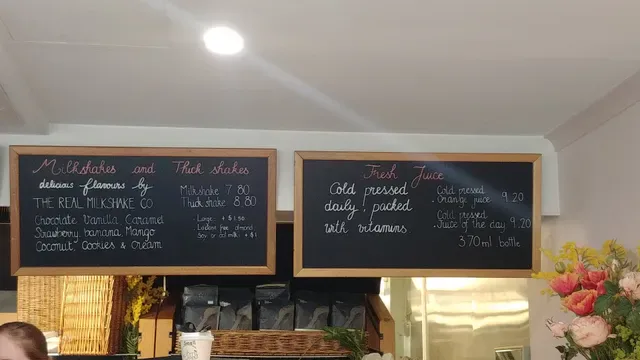 Milkshakes and Thick shakes
delicious flavours by
THE REAL MILKSHAKE CO
Chocolate Vanilla Caramel
Strawberry banana Mango
Coconut, Cookies & Cream
Milkshake 7.80
Thick shake 8.80
Large + $1.50
Lactose free almond
soy or oat milk + $1
Fresh Juice
Cold pressed
daily! packed
with vitamins
Cold pressed
. Orange juice 9.20
Cold pressed
. Juice of the day 9.20
370ml bottle